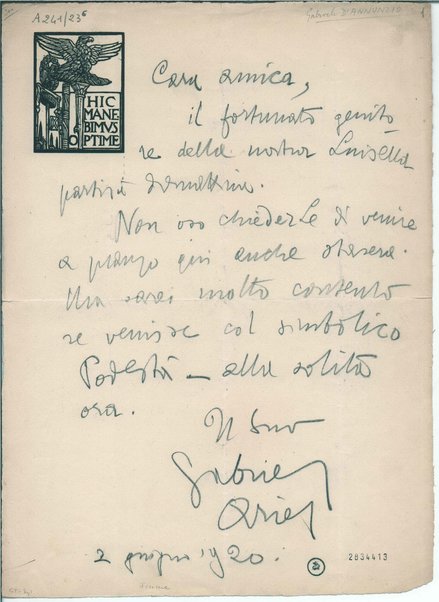 A 241/23⁶
Gabriele D'ANNUNZIO
HIC
MANE
BIMVS
OPTIME
Cara amica,
il fortunato genito
re della nostra Luisella
partirà domattina.
Non oso chiederLe di venire
a pranzo qui anche stasera.
Ma sarei molto contento
se venisse col simbolico
Podestà — alla solita
ora.
Il Suo
Gabriel
Ariel
2 giugno 1920.
2834413
Fiume